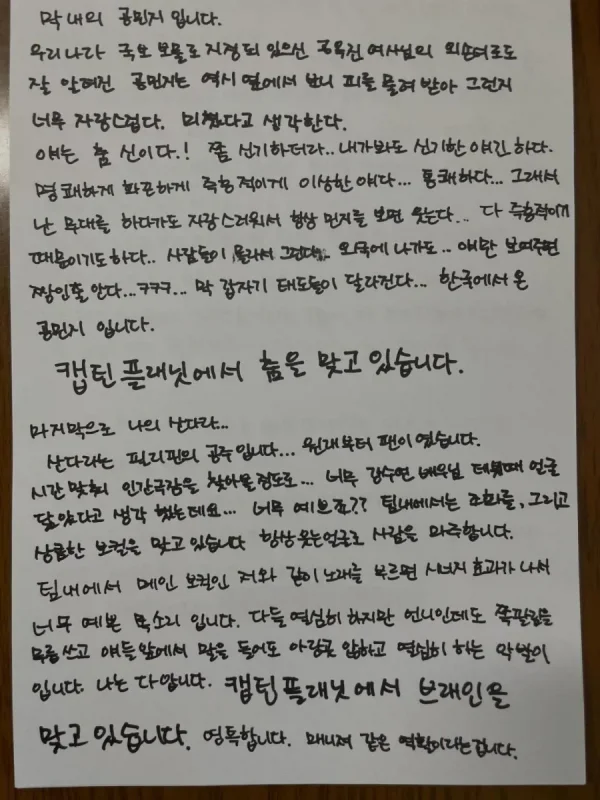 막내의 공민지 입니다.
우리나라 국보 보물로 지정되 있으신 공옥진 여사님의 외손녀로도
잘 알려진 공민지는 역시 옆에서 보니 피를 물려 받아 그런지
너무 자랑스럽다. 미쳤다고 생각한다.
얘는 춤 신이다.! 쫌 신기하더라.. 내가봐도 신기한 얘긴 하다.
명쾌하게 화끈하게 즉흥적이게 이상한 얘다... 통쾌하다... 그래서
난 무대를 하다가도 자랑스러워서 항상 민지를 보면 웃는다... 다 즉흥적이기
때문이기도 하다.. 사람들이 몰라서 그런다.. 외국에 나가도.. 얘만 보여주면
짱인줄 안다...ㅋㅋㅋ... 막 갑자기 태도들이 달라진다... 한국에서 온
공민지 입니다.
캡틴 플래닛에서 춤을 맞고 있습니다.
마지막으로 나의 산다라...
산다라는 필리핀의 공주입니다... 원래부터 팬이였습니다.
시간 맞춰 인간극장을 찾아볼정도로... 너무 강수연 배우님 데뷔때 얼굴
닮았다고 생각 했는데요... 너무 예쁘죠?? 팀내에서는 조화를, 그리고
상큼한 보컬을 맞고 있습니다 항상 웃는얼굴로 사람을 마주합니다.
팀내에서 메인 보컬인 저와 같이 노래를 부르면 시너지 효과가 나서
너무 예쁜 목소리 입니다. 다들 열심히 하지만 언니인데도 쪽팔림을
무릅쓰고 얘들앞에서 말을 들어도 아랑곳 않하고 열심히 하는 악발이
입니다. 나는 다 압니다. 캡틴플래닛에서 브래인을
맞고 있습니다. 영특합니다. 매니져 같은 역활이라는겁니다.